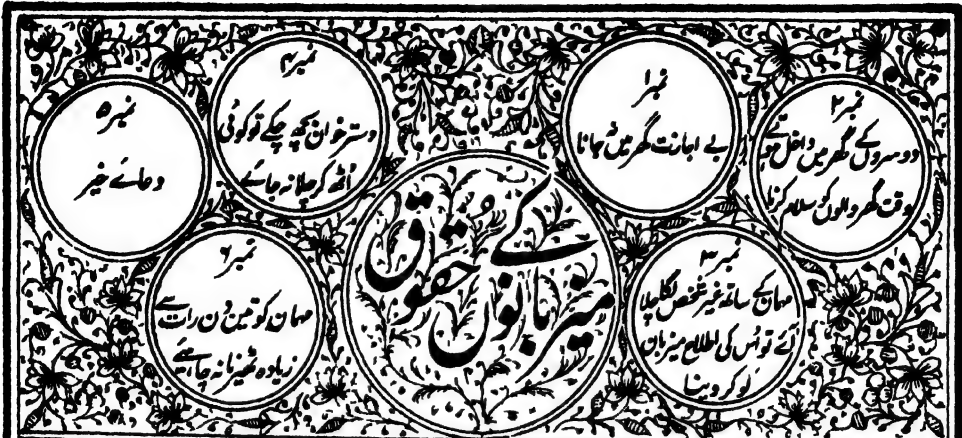 میزبانوں کے حقوق
نمبر ۱
بے اجازت گھر میں نہ جانا
نمبر ۲
دوسروں کے گھر میں داخل ہوتے
وقت گھر والوں کو سلام کرنا
نمبر ۳
مہمان کے ساتھ غیر شخص لگا چلا
آئے تو اُس کی اطلاع میزبان
کو کر دینا
نمبر ۴
دسترخوان بچھ چکے تو کوئی
اُٹھ کر چلا نہ جائے
نمبر ۵
دعائے خیر
نمبر ۶
مہمان کو تین دن رات سے
زیادہ ٹھیرنا نہ چاہئے